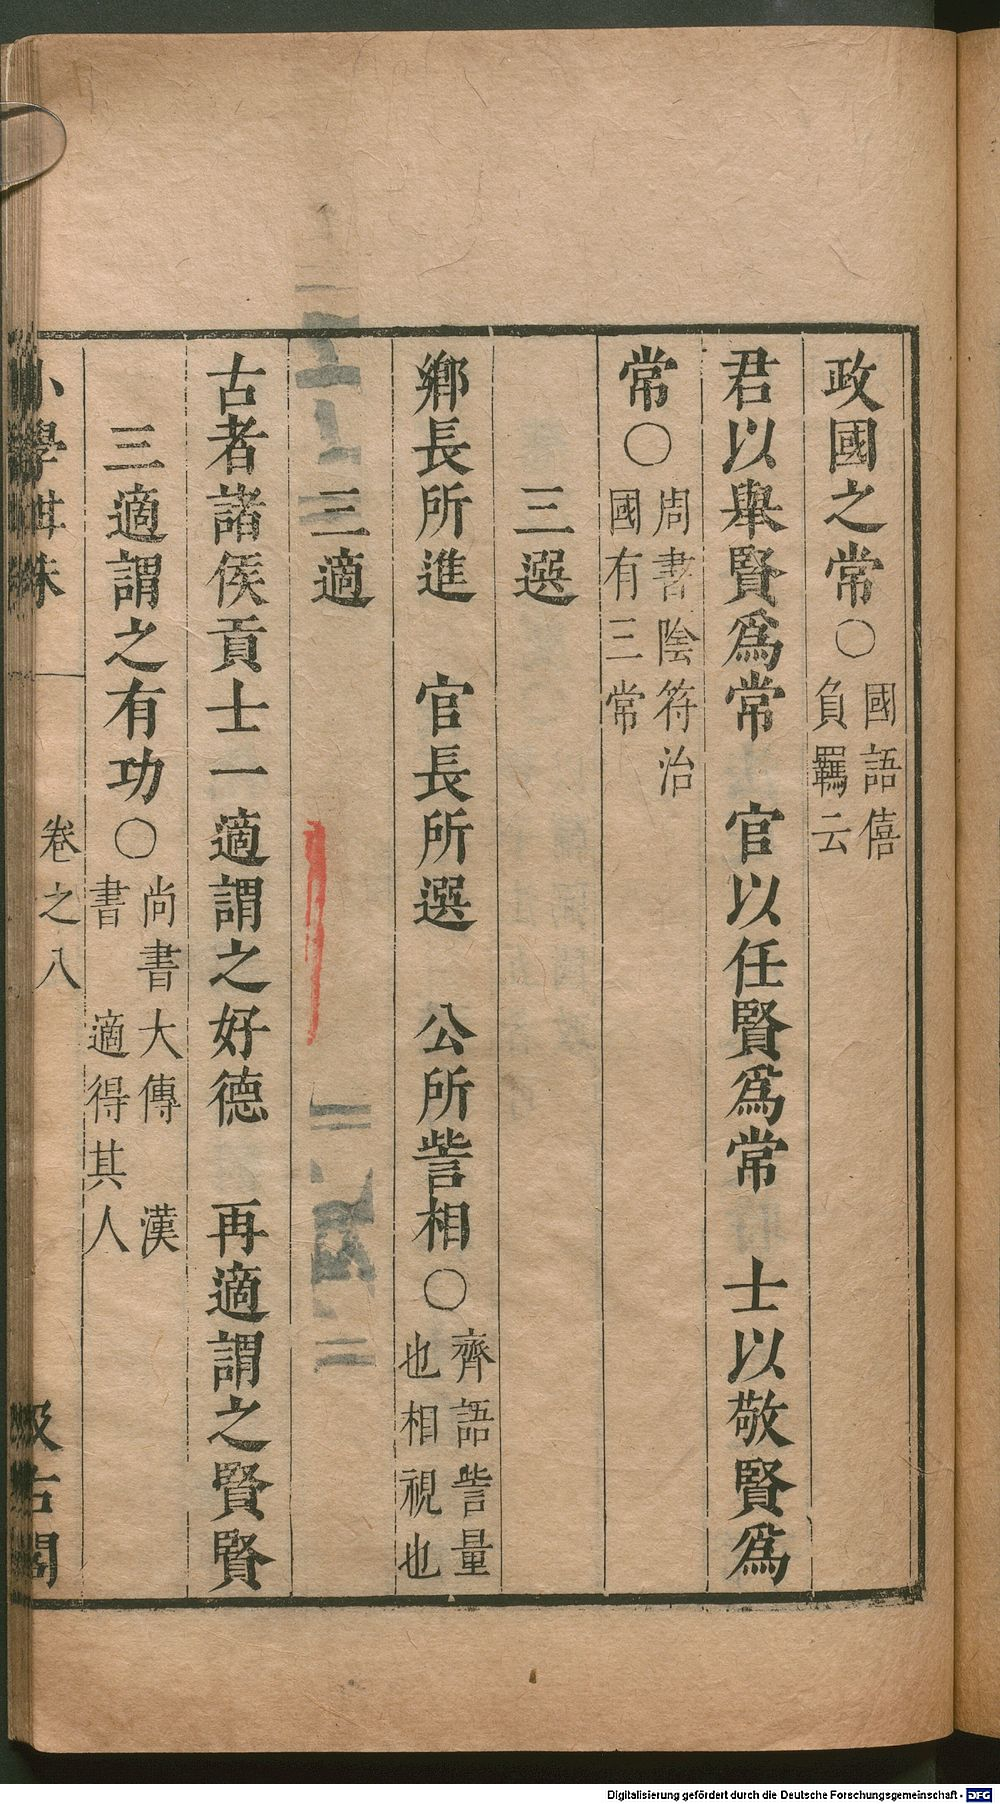 政國之常○國語僖負羈云
君以舉賢爲常　官以任賢爲常　士以敬賢爲
常○周書陰符治國有三常
三選
鄉長所進　官長所選　公所訾相○齊語訾量也相視也
三適
古者諸侯貢士一適謂之好德　再適謂之賢賢
三適謂之有功○尚書大傳　漢書　適得其人
小學紺珠　卷之八　汲古閣
Digitalisierung gefördert durch die Deutsche Forschungsgemeinschaft - DFG